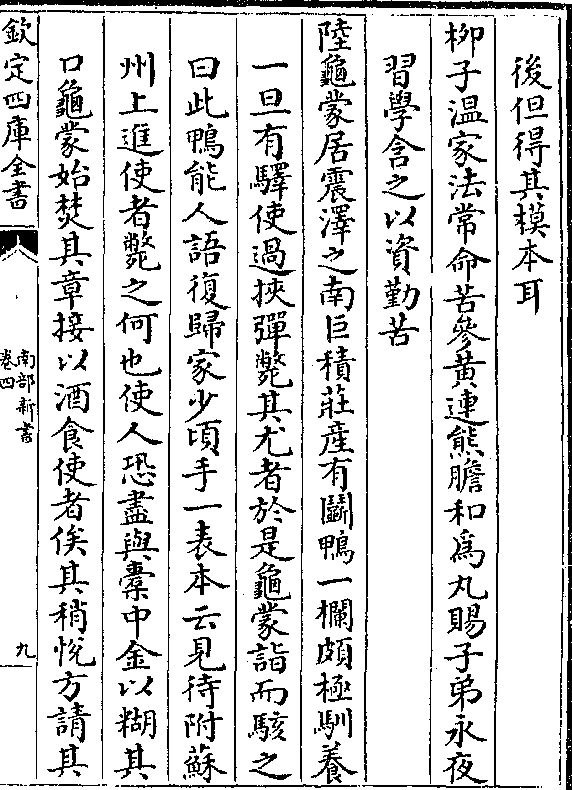 後但得其模本耳
柳子温家法常命苦參黄連熊膽和爲丸賜子弟永夜
習學含之以資勤苦
陸龜蒙居震澤之南巨積莊産有鬭鴨一欄頗極馴養
一旦有驛使過挾彈斃其尤者於是龜蒙詣而駭之
曰此鴨能人語復歸家少頃手一表本云見待附蘇
州上進使者斃之何也使人恐盡與橐中金以糊其
口龜蒙始焚其章接以酒食使者俟其稍悅方請其
欽定四庫全書
南部新書
卷四
九